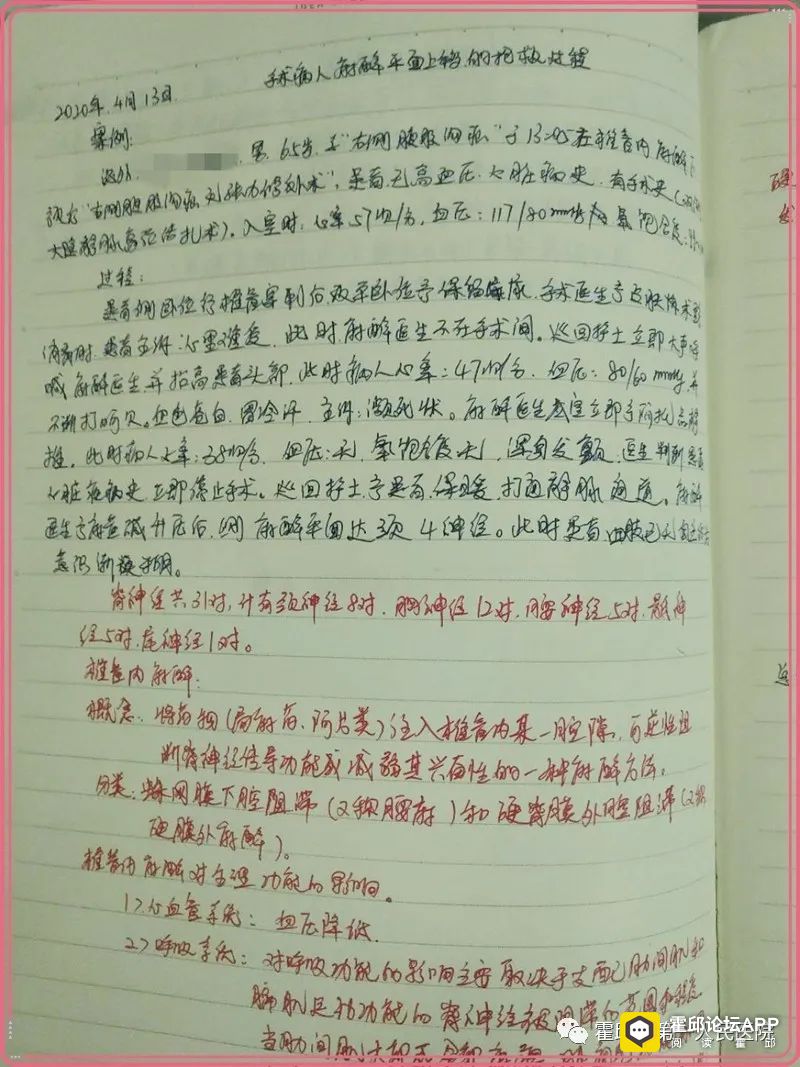 手术病人麻醉平面上移的抢救过程
2020年4月13日
案例:
男，65岁，于"右侧腹股沟疝"于13:05在椎管内麻醉下
"右侧腹股沟疝无张力修补术"，患者既往高血压、心脏病史，有手术史
大隐静脉高位结扎术)。入室时：心率57次/分，血压：117/80mmHg，氧饱合度:
过程:
患者侧卧位行椎管穿刺后改平卧位予保暖，手术医生予皮肤消毒
消毒时，患者主诉：心里难受，此时麻醉医生不在手术间。巡回护士立即大声呼
喊麻醉医生并抬高患者头部，此时病人心率：47次/分，血压：80/60mmHg，并
不断打呵欠。面色苍白，冒冷汗，主诉：濒死状。麻醉医生赶室立即予阿托品静
推。此时病人心率：38次/分，血压：无，氧饱合度无，浑身发颤，医生判断患者
心脏疾病史，立即停止手术。巡回护士予患者保暖，打通静脉通道。麻醉
医生予麻黄碱升压后，测麻醉平面达颈4神经。此时患者四肢已无
意识渐模糊。
脊神经共31对，计有颈神经8对，胸神经12对，腰神经5对，骶神
经5对，尾神经1对。
椎管内麻醉:
概念：将药物(局麻药、阿片类)注入椎管内某一腔隙，可逆性阻
断脊神经传导功能或减弱其兴奋性的一种麻醉方法。
分类：蛛网膜下腔阻滞(又称腰麻)和硬脊膜外腔阻滞(又称
硬膜外麻醉)。
椎管内麻醉对生理功能的影响。
1>心血管系统：血压降低
2>呼吸系统：对呼吸功能的影响主要取决于支配肋间肌和
膈肌运动功能的脊神经被阻滞的范围和程度
当肋间肌大部或全部
霍邱 第一人民医院
霍邱论坛APP
阅读霍邱